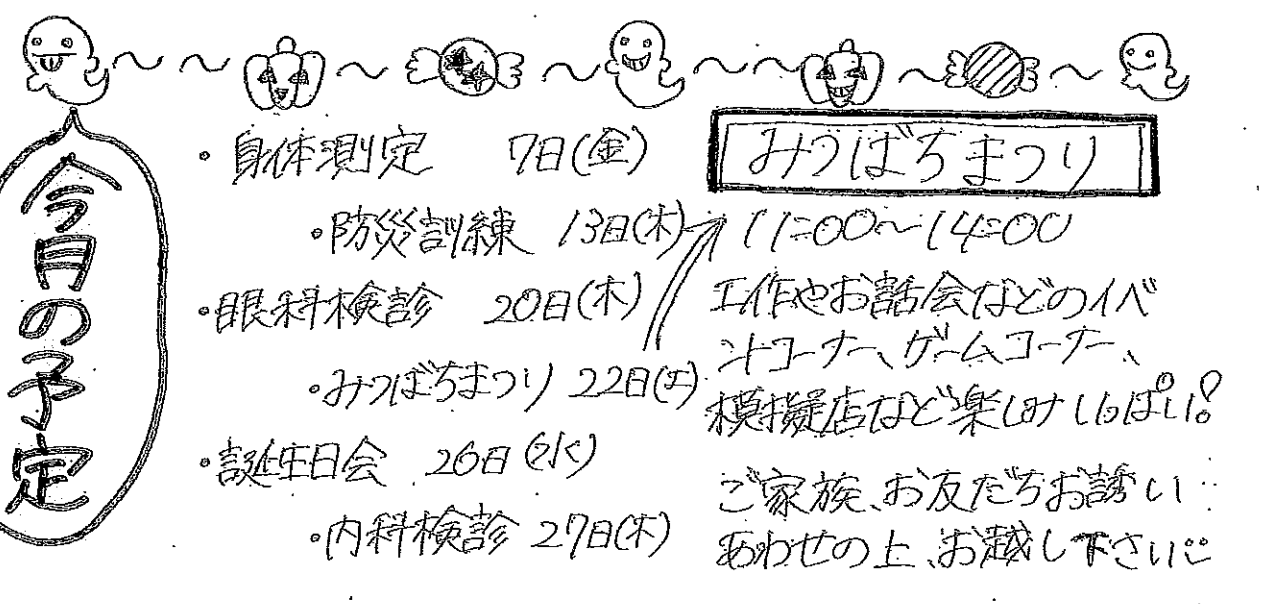 今月の予定
・身体測定 7日(金)
・防災訓練 13日(木)
・眼科検診 20日(木)
・みつばちまつり 22日(土)
・誕生日会 26日(水)
・内科検診 27日(木)
みつばちまつり
11:00~14:00
工作やお話会などのイベ
ントコーナー、ゲームコーナー、
模擬店など楽しみいっぱい!
ご家族、お友だちお誘い
あわせの上、お越し下さい